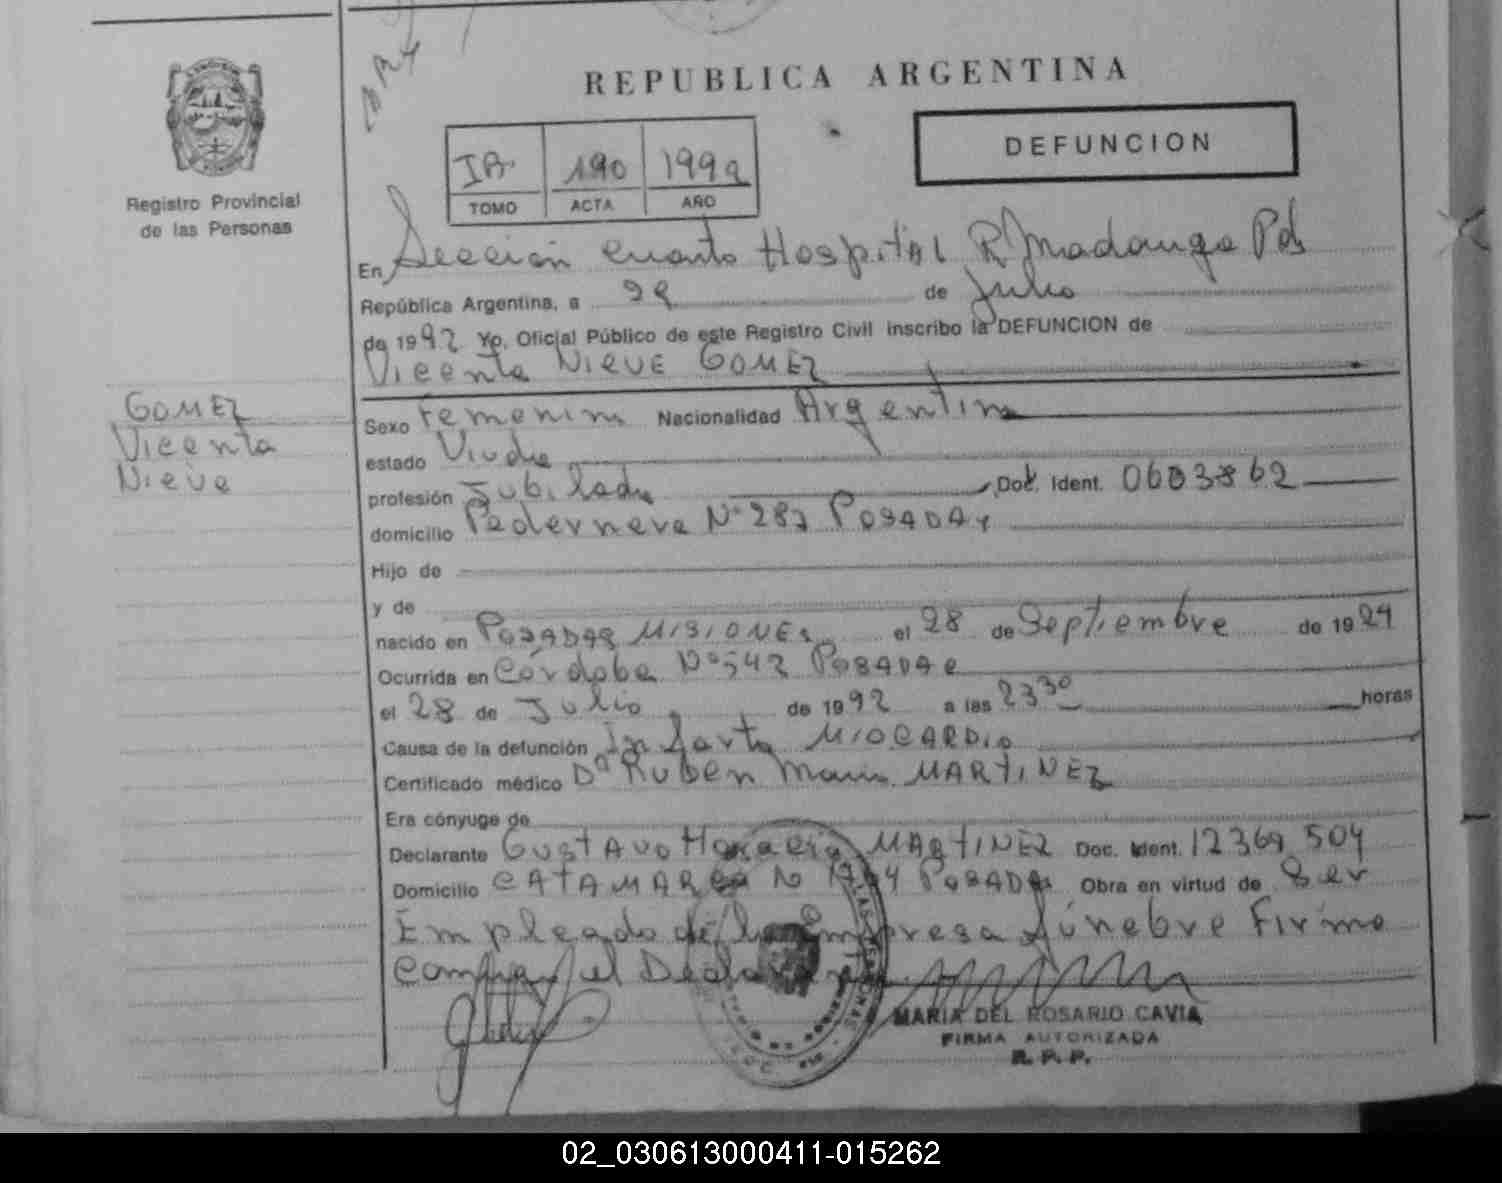 REPUBLICA ARGENTINA
DEFUNCION
190 1992
TOMO ACTA AÑO
Registro Provincial
de las Personas
En Sección Cuarta Hospital R. Madariaga Pdas
República Argentina, a 29 de Julio
de 1992 Yo, Oficial Público de este Registro Civil inscribo la DEFUNCION de
Vicenta NIEVE GOMEZ
GOMEZ
Vicenta
Nieve
Sexo Femenino Nacionalidad Argentina
estado Viuda
profesión Jubilada Doc. Ident.
domicilio Pedernera Nº 287 POSADAS
Hijo de
y de
nacido en POSADAS MISIONES el 28 de Septiembre de 19
Ocurrida en Córdoba Nº 542 POSADAS
el 28 de Julio de 1992 a las 23 30 horas
Causa de la defunción Infarto MIOCARDIO
Certificado médico Dr Ruben Mario MARTINEZ
Era cónyuge de
Declarante GUSTAVO Horacio MARTINEZ Doc. Ident. 12369 504
Domicilio CATAMARCA N POSADAS Obra en virtud de Ser
Empleado de la Empresa fúnebre Firma
conmigo el Declarante
MARIA DEL ROSARIO CAVIA
FIRMA AUTORIZADA
R. P. P.
02_030613000411-015262